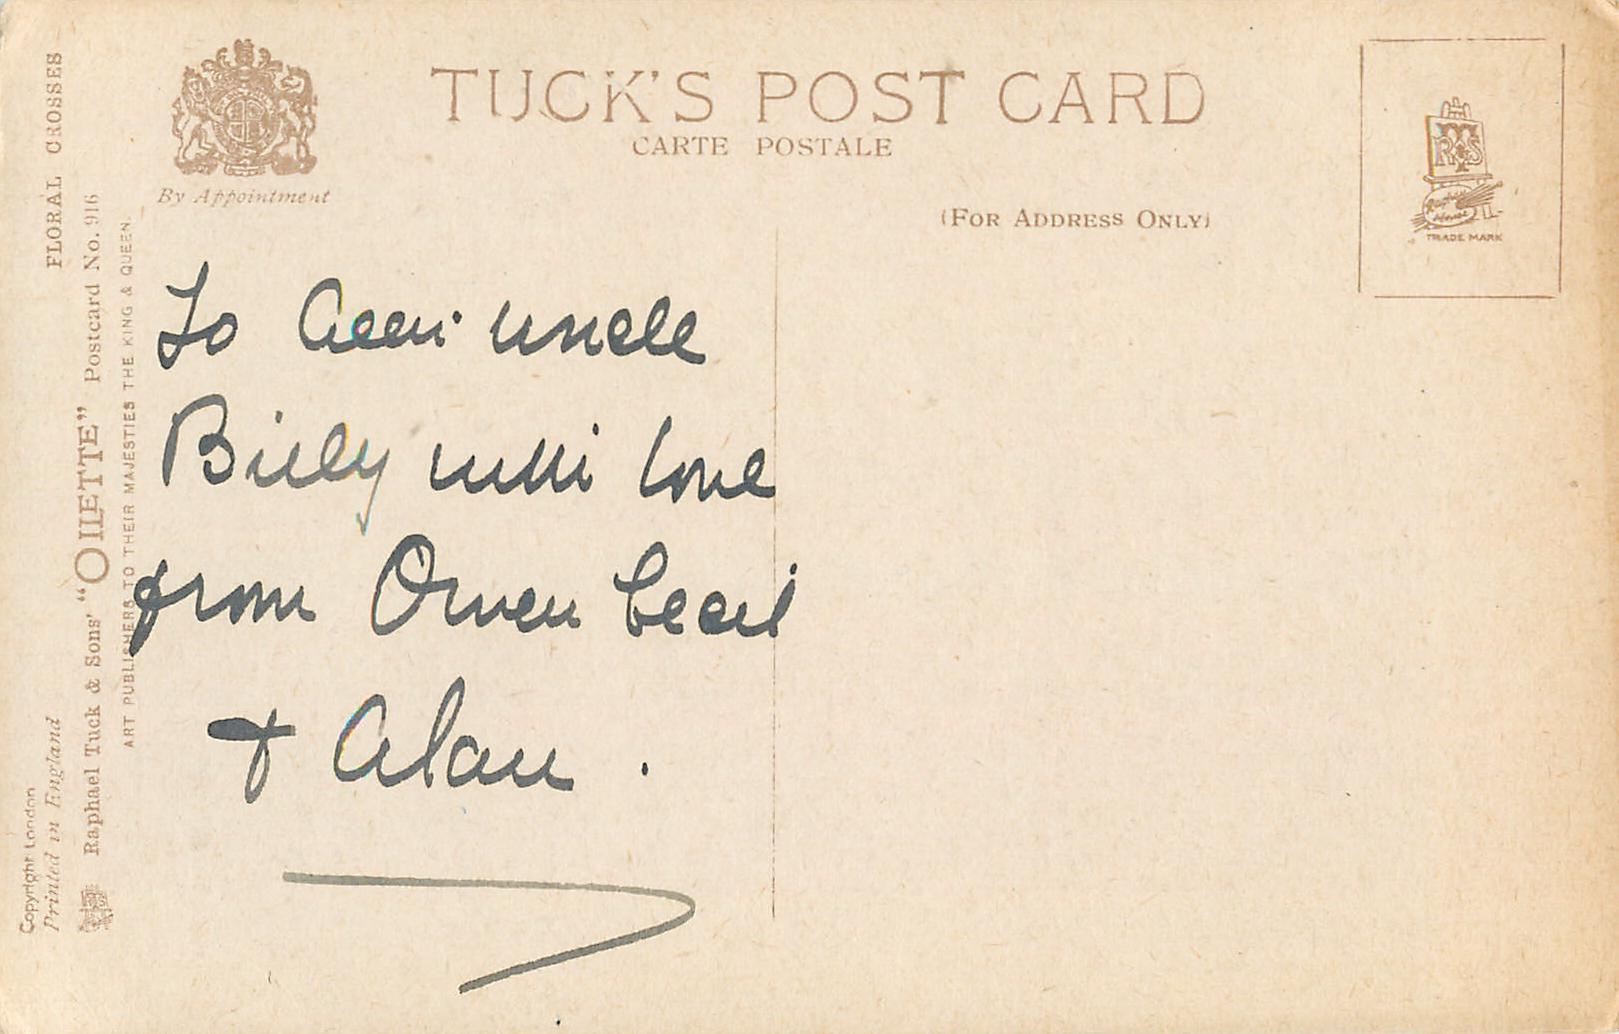 TUCK'S POST CARD
CARTE POSTALE
By Appointment
(FOR ADDRESS ONLY)
RTS
Raphael
House
TRADE MARK
FLORAL CROSSES
Copyright London
Printed in England
Raphael Tuck & Sons' "OILETTE" Postcard No. 916
ART PUBLISHERS TO THEIR MAJESTIES THE KING & QUEEN.
To uncle
Billy with love
from Owen Cecil
& Alan.